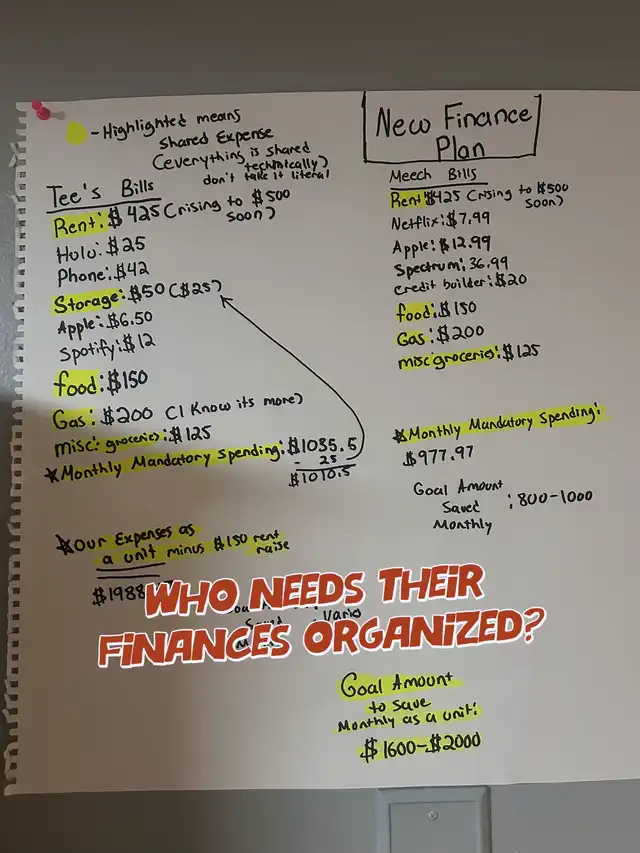 -Highlighted means
shared Expense
(everything is shared
technically)
don't take it literal
New Finance
Plan
Tee's Bills
Rent: $425 (rising to $500
soon)
Hulu: $25
Phone: $42
Storage: $50 ($25)
Apple: $6.50
Spotify: $12
food: $150
Gas: $200 (I know its more)
misc: groceries: $125
*Monthly Mandatory Spending: $1035.5
- 25
$1010.5
Meech Bills
Rent $425 (rising to $500
soon)
Netflix: $7.99
Apple: $12.99
Spectrum: 36.99
credit builder: $20
food: $150
Gas: $200
misc groceries: $125
*Monthly Mandatory Spending:
$977.97
Goal Amount
Saved : 800-1000
Monthly
*Our Expenses as
a unit minus $150 rent
raise
$1988
WHO NEEDS THEIR
FINANCES ORGANIZED?
Goal Amount
to save
Monthly as a unit:
$1600-$2000